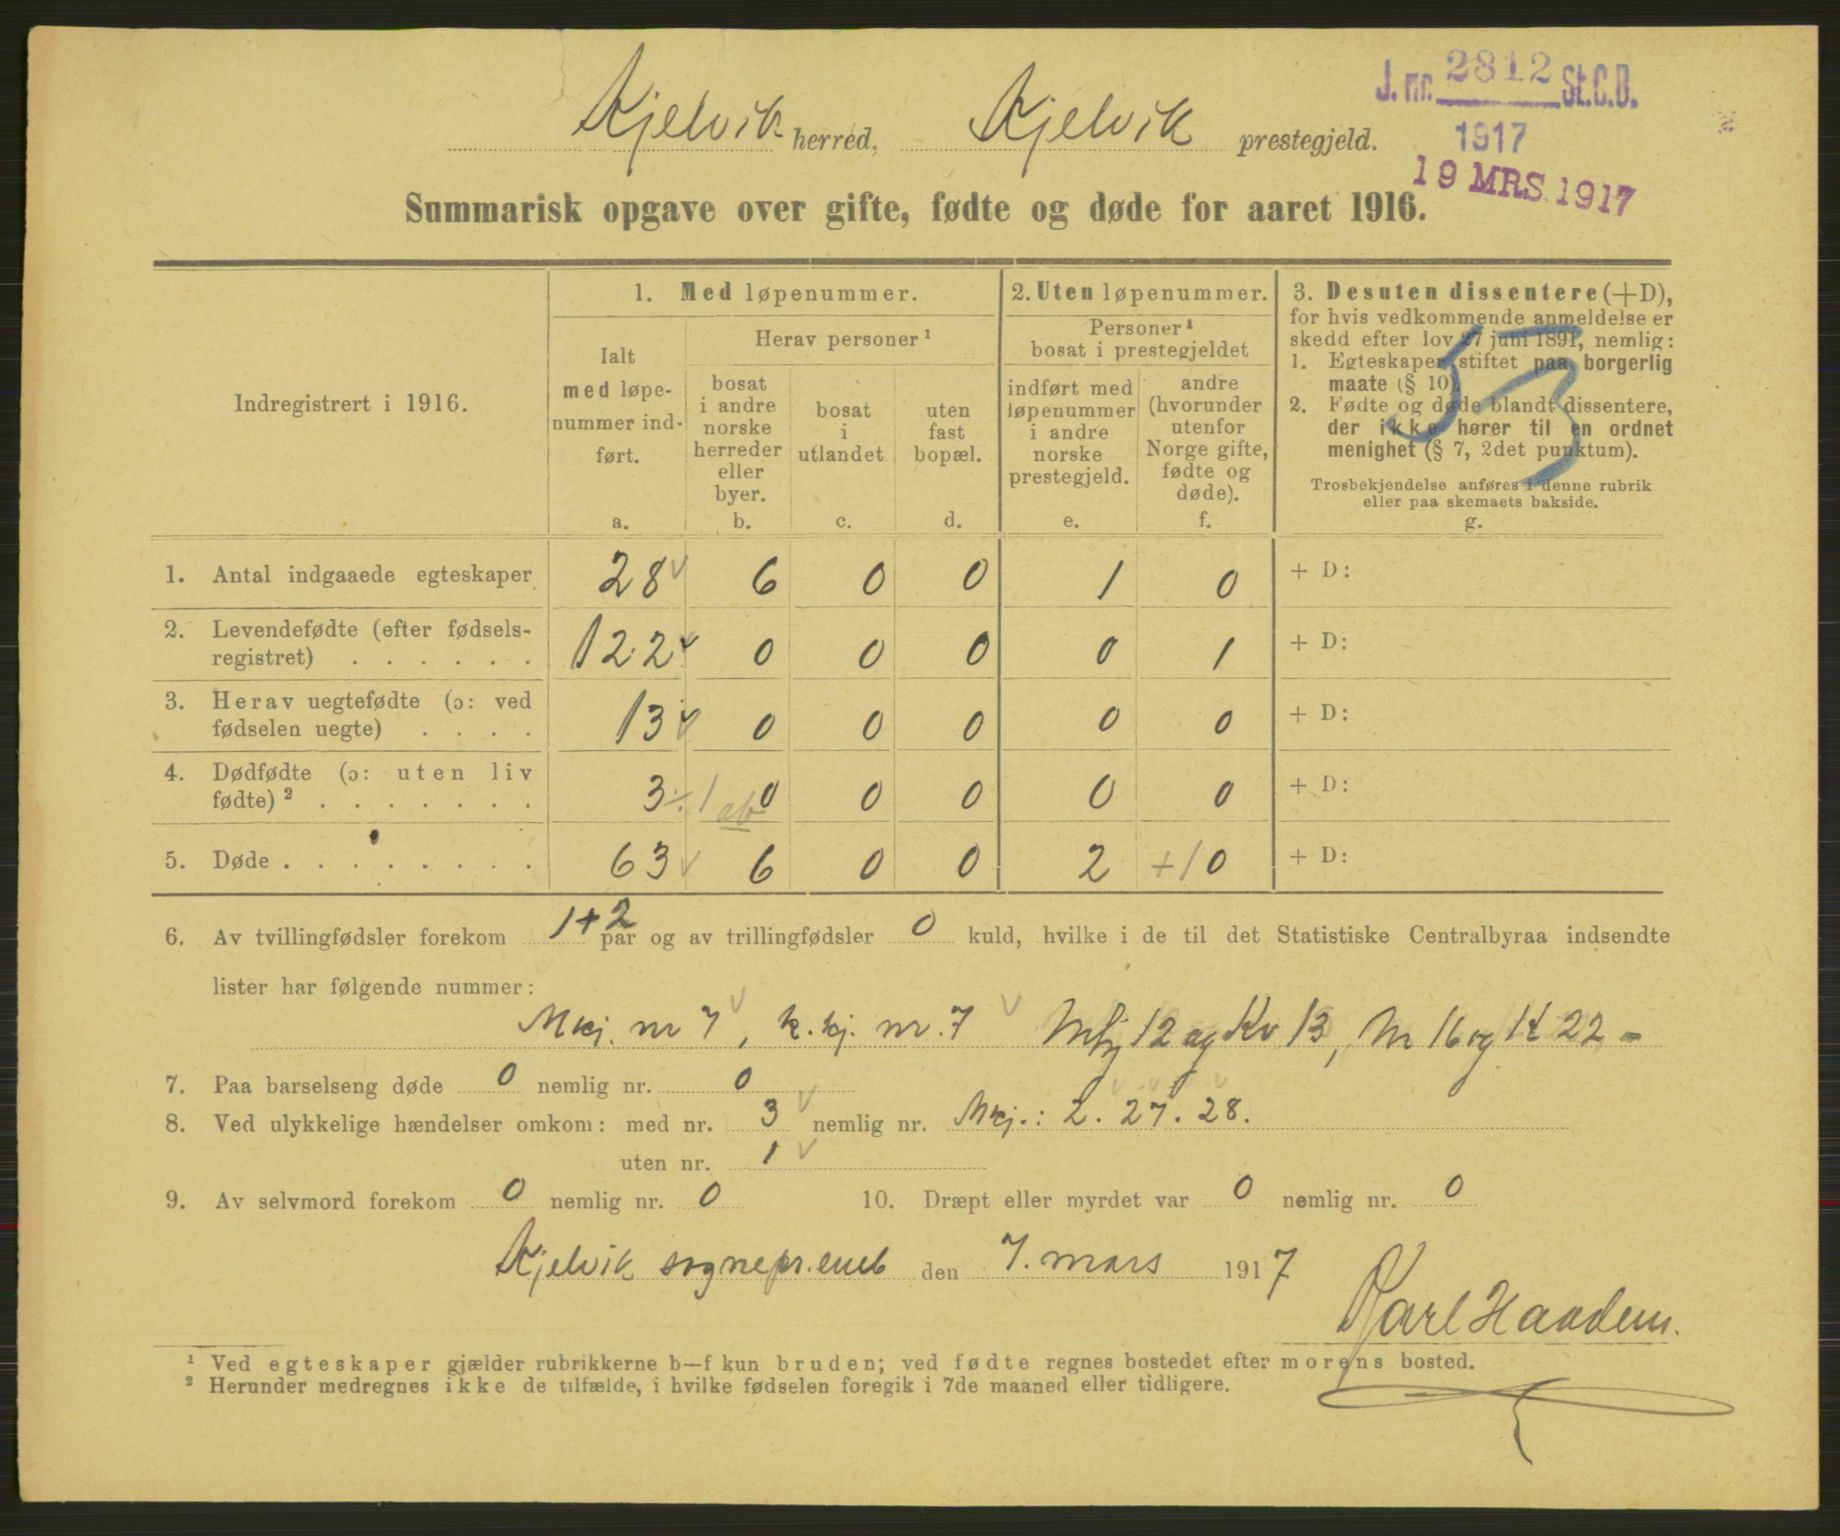 J. nr. 2812 St.C.B.
1917
19 MRS. 1917
Kjelvik herred, Kjelvik prestegjeld.
Summarisk opgave over gifte, fødte og døde for aaret 1916.
Indregistrert i 1916.
1. Med løpenummer.
Ialt
med løpe-
nummer ind-
ført.
a.
Herav personer ¹
bosat
i andre
norske
herreder
eller
byer.
b.
bosat
i
utlandet
c.
uten
fast
bopæl.
d.
2. Uten løpenummer.
Personer ¹
bosat i prestegjeldet
indført med
løpenummer
i andre
norske
prestegjeld.
e.
andre
(hvorunder
utenfor
Norge gifte,
fødte og
døde).
f.
3. Desuten dissentere (+D),
for hvis vedkommende anmeldelse er
skedd efter lov 27 juni 1891, nemlig:
1. Egteskaper stiftet paa borgerlig
maate (§ 10).
2. Fødte og døde blandt dissentere,
der ikke hører til en ordnet
menighet (§ 7, 2det punktum).
Trosbekjendelse anføres i denne rubrik
eller paa skemaets bakside.
g.
53
1. Antal indgaaede egteskaper 28 6 0 0 1 0 + D:
2. Levendefødte (efter fødsels-
registret) . . . . . . 122 0 0 0 0 1 + D:
3. Herav uegtefødte (ɔ: ved
fødselen uegte) . . . . 13 0 0 0 0 0 + D:
4. Dødfødte (ɔ: uten liv
fødte) ² . . . . . . . 3 ÷1 ab 0 0 0 0 0 + D:
5. Døde . . . . . . . . 63 6 0 0 2 +1 0 + D:
6. Av tvillingfødsler forekom 1+2 par og av trillingfødsler 0 kuld, hvilke i de til det Statistiske Centralbyraa indsendte
lister har følgende nummer:
Mkj. nr 7, k.kj. nr. 7 Mkj 12 og Kv 13, M 16 og K 22 -
7. Paa barselseng døde 0 nemlig nr. 0
8. Ved ulykkelige hændelser omkom: med nr. 3 nemlig nr. Mkj.: 2. 27. 28.
uten nr. 1
9. Av selvmord forekom 0 nemlig nr. 0 10. Dræpt eller myrdet var 0 nemlig nr. 0
Kjelvik sognepr.emb den 7. mars 1917
Karl Haadem.
¹ Ved egteskaper gjælder rubrikkerne b—f kun bruden; ved fødte regnes bostedet efter morens bosted.
² Herunder medregnes ikke de tilfælde, i hvilke fødselen foregik i 7de maaned eller tidligere.